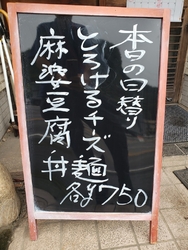 本日の日替り
とろけるチーズ麺
麻婆豆腐丼
各¥750